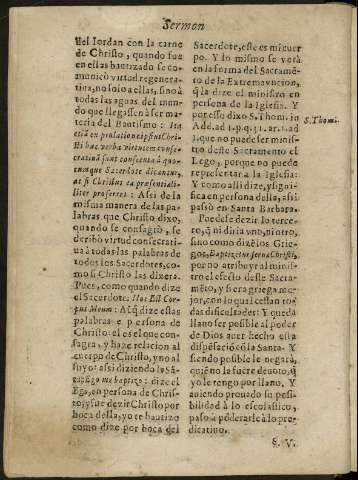 Sermon
del Iordan con la carne
de Christo, quando fue
en ellas bautizado se co-
municò virtud regenera-
tiua, no solo a ellas, sino à
todas las aguas del mun-
do que llegassen à ser ma-
teria del Bautismo: Ita
etiã ex prolatione ipsius Chri-
sti hæc verba virtutem conse-
cratiuã sunt consecuta à quo-
cumque Sacerdote dicantur,
ac si Christus ea præsentiali-
liter proferret: Assi de la
misma manera de las pa-
labras que Christo dixo,
quando se consagrò, se
deribò virtud consecrati-
ua à todas las palabras de
todos los Sacerdotes, co-
mo si Christo las dixera.
Pues, como quando dize
el Sacerdote: Hoc Est Cor-
pus Meum: Aũq̃ dize estas
palabras e persona de
Christo: el es el que con-
sagra, y haze relacion al
cuerpo de Christo, y no al
suyo: assi diziendo la Sã-
ta, Ego me baptizo: dize el
Ego, en persona de Chris-
to, y fue dezir Christo por
boca della, yo te bautizo
como dize por boca del
Sacerdote, este es mi cuer
po. Y lo mismo se verà
en la forma del Sacramẽ-
to de la Extremauncion,
q̃ la dize el ministro en
persona de la Iglesia. Y
por esso dixo S. Thom. in
Add. ad 1. p. q. 31. ar. 1. ad
1. que no puede ser minis-
tro deste Sacramento el
Lego, porque no puede
representar a la Iglesia:
Y como alli dize, y signi-
fica en persona della, assi
passò en Santa Barbara.
Puedese dezir lo terce-
ro, q̃ ni diria vno, ni otro,
sino como dizẽ los Grie-
gos, Baptizetur serua Christi,
por no atribuyr al minis-
tro el efecto deste Sacra-
mẽto, y si era griega me-
jor, con lo qual cessan to-
das dificultades: Y queda
llano ser possible al poder
de Dios auer hecho esta
dispẽsaciõ cõ la Santa. Y
siendo possible le negarà,
quiẽ no la fuere deuoto, q̃
yo le tengo por llano. Y
auiendo prouado su possi-
bilidad à lo escolastico,
passo à põderarle à lo pre-
dicatiuo.
S. Thomi.
§. V.